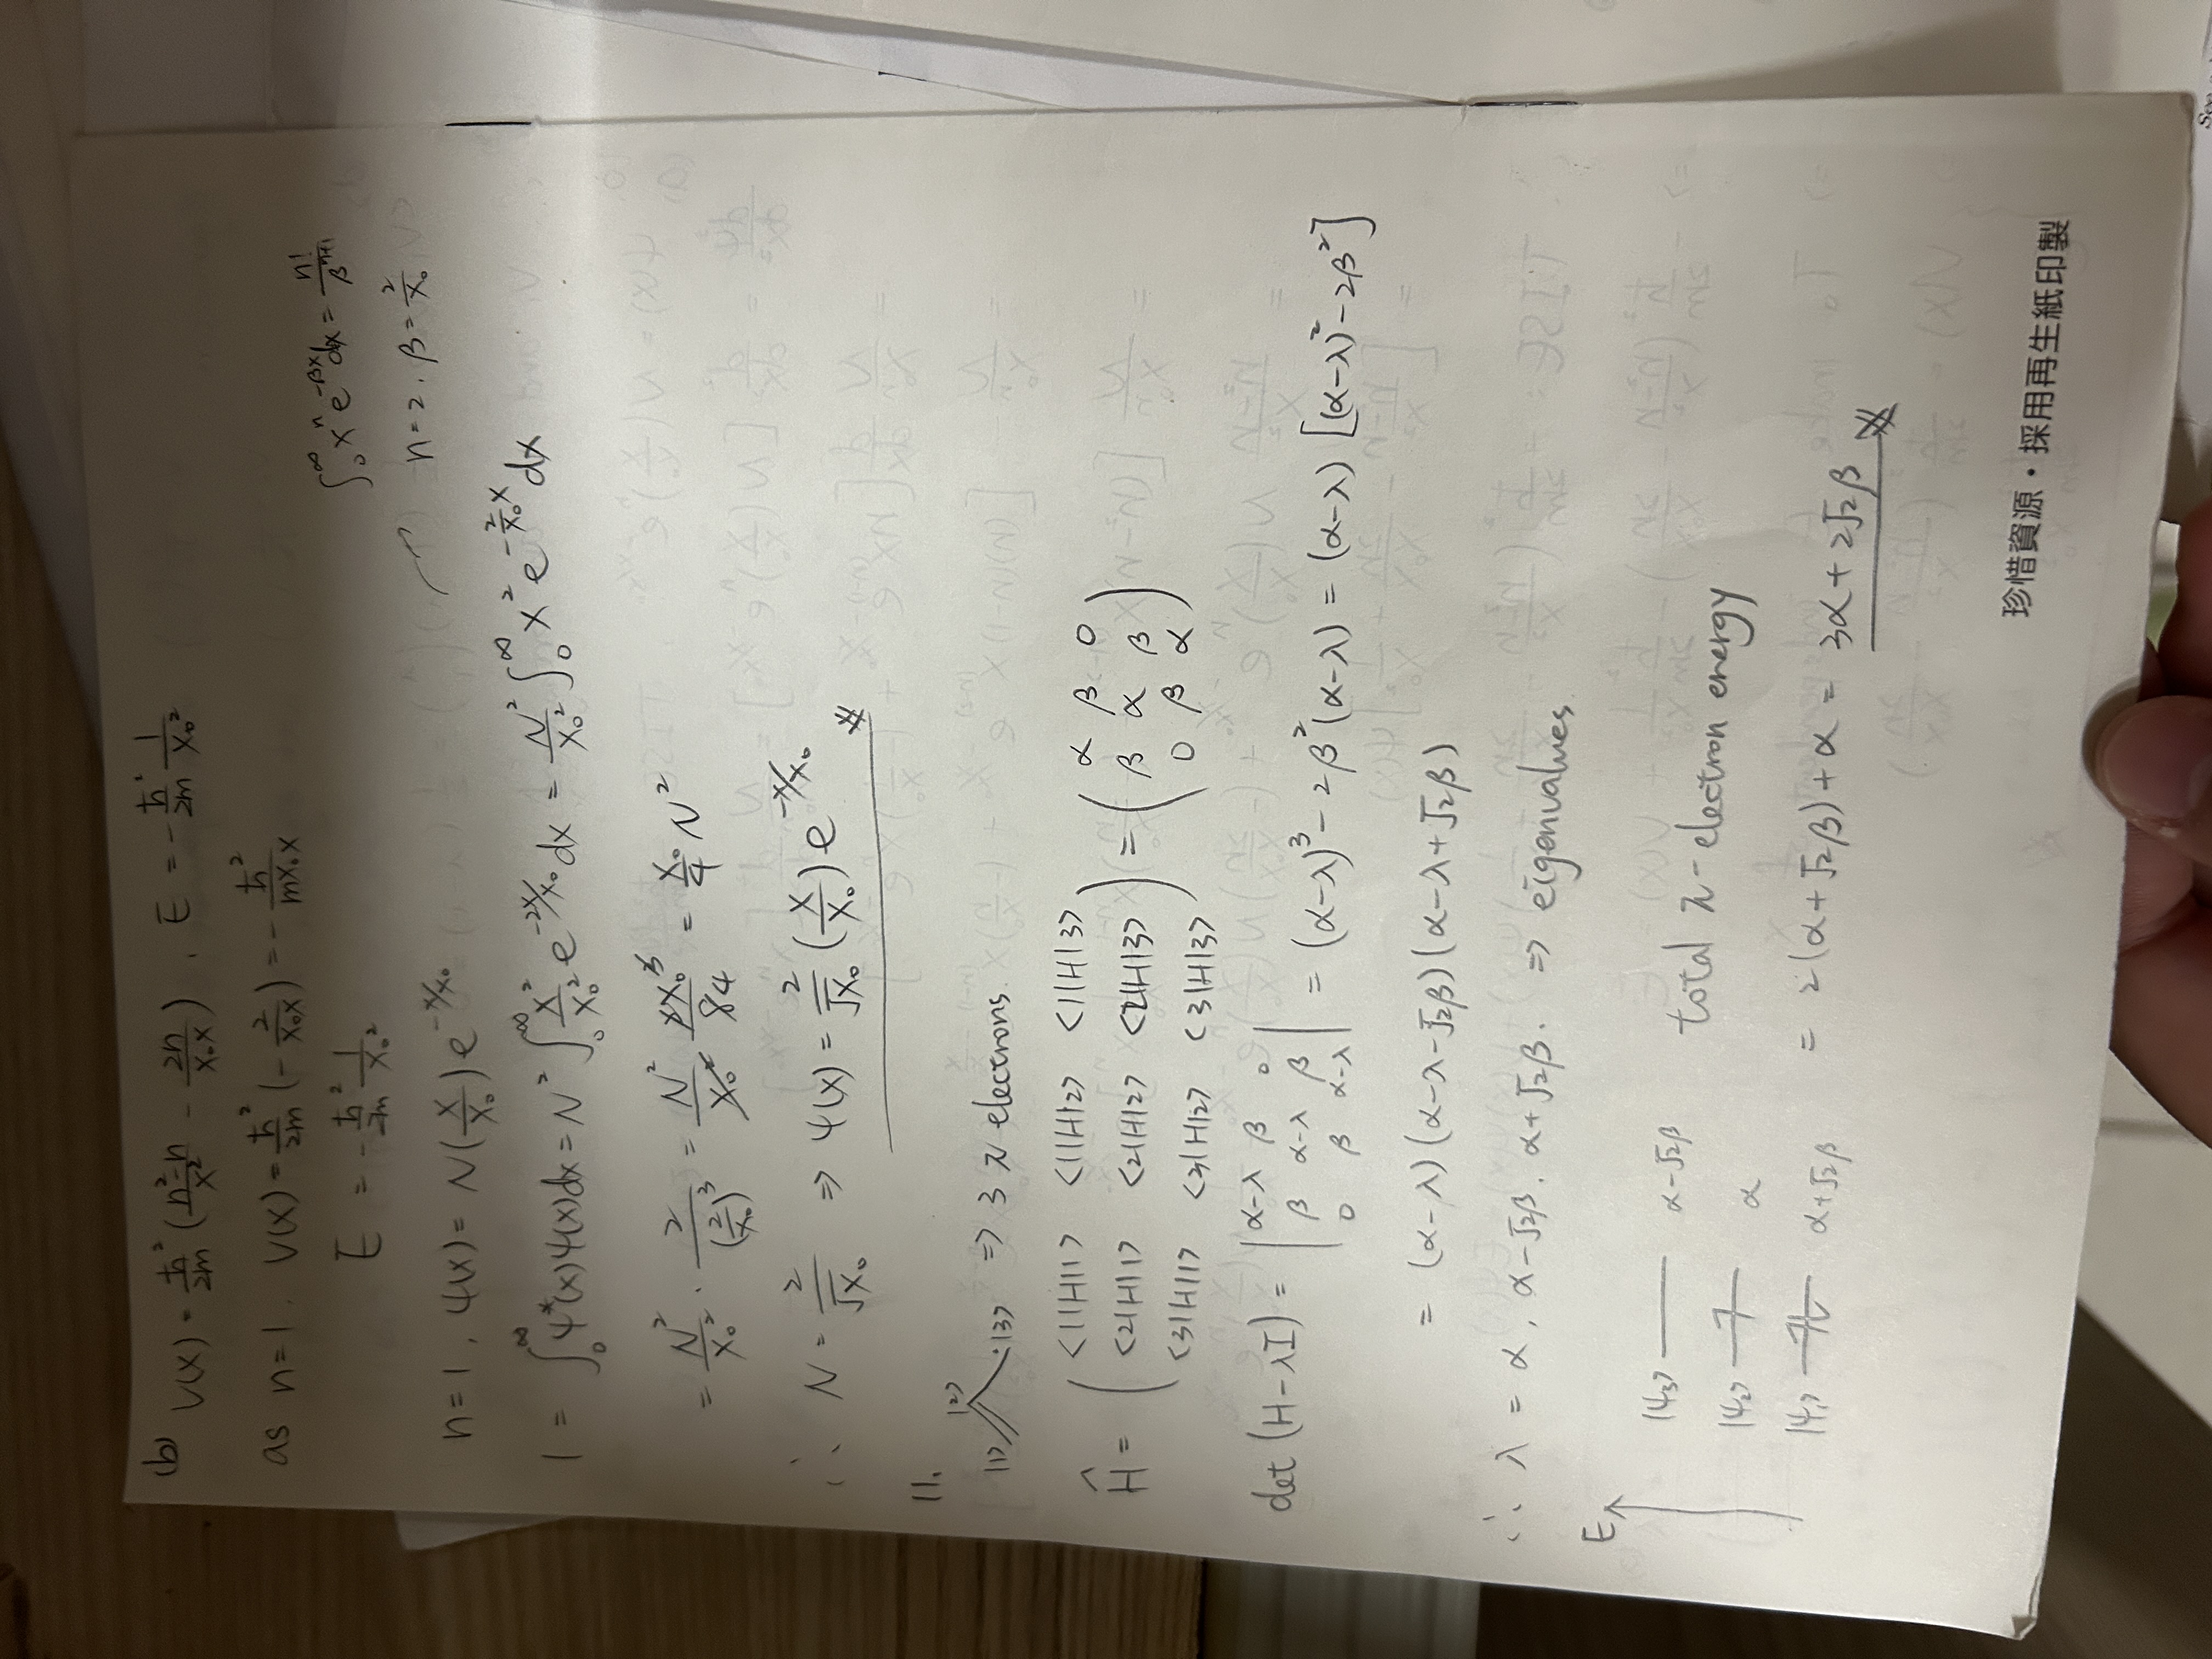 (b) V(x) = ħ²/2m (n²-n/x² - 2n/x₀x) , E = -ħ²/2m 1/x₀²
as n=1, V(x) = ħ²/2m (-2/x₀x) = -ħ²/mx₀x
E = -ħ²/2m 1/x₀²
∫₀^∞ xⁿ e^(-βx) dx = n!/βⁿ⁺¹
n=2, β=2/x₀
n=1, ψ(x) = N(x/x₀) e^(-x/x₀)
1 = ∫₀^∞ ψ*(x)ψ(x)dx = N² ∫₀^∞ x²/x₀² e^(-2x/x₀) dx = N²/x₀² ∫₀^∞ x² e^(-2/x₀ x) dx
= N²/x₀² · 2/(2/x₀)³ = N²/x₀² 2x₀³/8 4 = x₀/4 N²
∴ N = 2/√x₀ ⇒ ψ(x) = 2/√x₀ (x/x₀) e^(-x/x₀)
11.
|2>
|1> |3> ⇒ 3 π electrons.
<1|H|1> <1|H|2> <1|H|3> α β 0
Ĥ = ( <2|H|1> <2|H|2> <2|H|3> ) = ( β α β )
<3|H|1> <3|H|2> <3|H|3> 0 β α
α-λ β 0
det (H-λI) = | β α-λ β | = (α-λ)³ - 2β²(α-λ) = (α-λ) [(α-λ)² - 2β²]
0 β α-λ
= (α-λ)(α-λ-√2β)(α-λ+√2β)
∴ λ = α, α-√2β, α+√2β. ⇒ eigenvalues
E
|ψ₃> α-√2β
total π-electron energy
|ψ₂> α
|ψ₁> α+√2β = 2(α+√2β)+α = 3α+2√2β
珍惜資源・採用再生紙印製